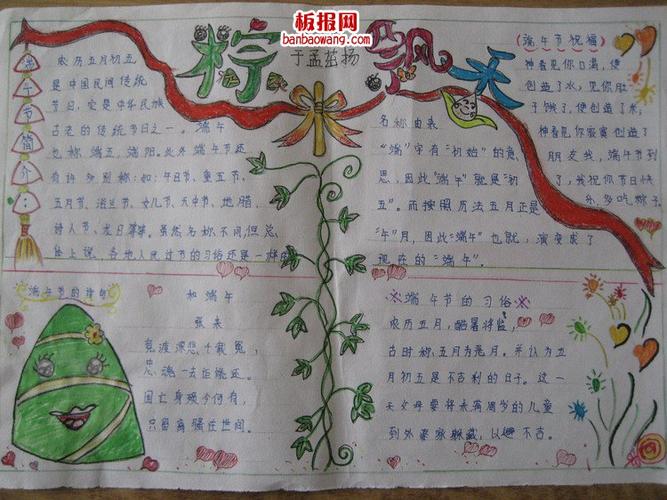 板报网
banbaowang.com
粽飘天
于孟茹扬
端午节简介：
农历五月初五
是中国民间传统
节日，它是中华民族
古老的传统节日之一。端午
也称端五，端阳。此外端午节还
有许多别称：如：午日节、重五节、
五月节、浴兰节、女儿节、天中节、地腊、
诗人节、龙日等等。虽然名称不同，但总
体上说，各地人民过节的习俗还是一样的
名称由来
"端"字有"初始"的意
思，因此"端午"就是"初
五"。而按照历法五月正是
"午"月，因此"端午"也就，演变成了
现在的"端午"。
（端午节祝福）
神看见你口渴，便
创造了水，神看见你肚
子饿了，便创造了米，
神看见你寂寞创造了
朋友我，端午节到
了，我祝你节日快
乐多吃粽子
端午节的诗句
和端午
张耒
竞渡深悲千载冤，
忠魂一去讵能还。
国亡身殒今何有，
只留离骚在世间。
※端午节的习俗※
农历五月，酷暑将临，
古时称五月为恶月。并认为五
月初五是不吉利的日子。这一
天父母要将未满周岁的儿童
到外婆家躲藏，以避不吉。